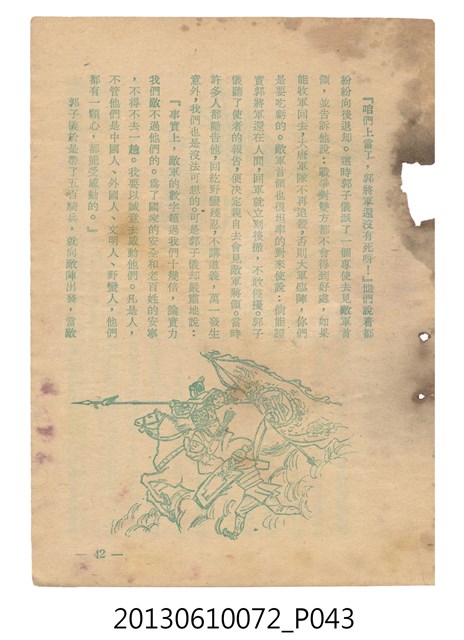 『咱們上當了，郭將軍還沒有死呀！』他們說着都
紛紛向後退却。這時郭子儀派了一個專使去見敵軍首
領，並告訴他說：戰爭對雙方都不會得到好處，如果
能收軍回去，大唐軍隊不再追殺，否則大軍臨陣，你們
是要吃虧的。敵軍首領也很坦率的對來使說：倘能證
實郭將軍還在人間，回軍就立刻後撤，不敢侵擾。郭子
儀聽了使者的報告，便決定親自去會見敵軍將領。當時
許多人都勸告他，回紇野蠻殘忍，不講道義，萬一發生
意外，我們也是沒法可想的。可是郭子儀却嚴肅地說：
『事實上，敵軍的數字超過我們十幾倍，論實力
我們敵不過他們的。爲了國家的安全和老百姓的安寧
，不得不去一趟。我要以誠意去感動他們。凡是人，
不管他們是中國人、外國人、文明人、野蠻人，他們
都有一顆心，都能受感動的。』
郭子儀於是帶了五百騎兵，就向敵陣出發，當敵
— 42 —
20130610072_P043